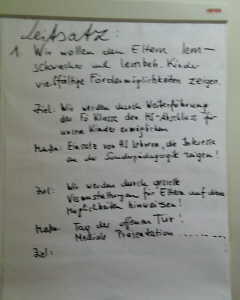 Leitsatz:
1. Wir wollen den Eltern lern-
schwacher und lernbeh. Kinder
vielfältige Fördermöglichkeiten zeigen.
Ziel: Wir werden durch Weiterführung
der Fö Klasse den HS-Abschluss für
unsere Kinder ermöglichen
Maßn: Einsatz von HS Lehrern, die Interesse
an der Sonderpädagogik zeigen!
Ziel: Wir werden durch gezielte
Veranstaltungen für Eltern auf diese
Möglichkeiten hinweisen!
Maßn: Tag der offenen Tür!
Mediale Präsentation ..........
Ziel: